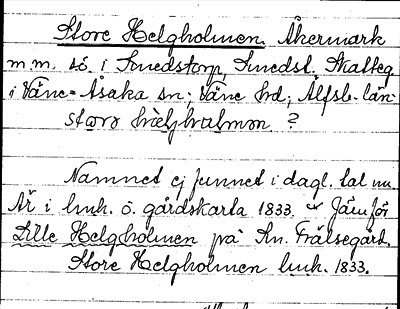 Store Helgholmen. Åkermark
m.m. sö. i Smedstorp, Smedst. Skatteg.
i Väne-Åsaka sn; Väne hd; Älfsb. län.
stora hæljhalmon ?
Namnet ej funnet i dagl. tal nu.
Är i lmk. ö. gårdskarta 1833. Jämför
Lille Helgholmen på Kn. Frälsegård.
Store Helgholmen lmk. 1833.